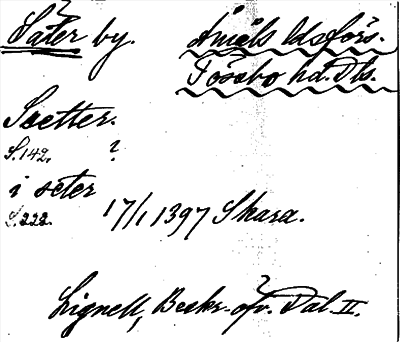 Säter by. Åmåls ldsförs.
Tössbo hd. Dls.
Saetter.
S. 142. ?
i seter
S. 222. 17/1 1397 Skara.
Lignell, Beskr. öfv. Dal. II.